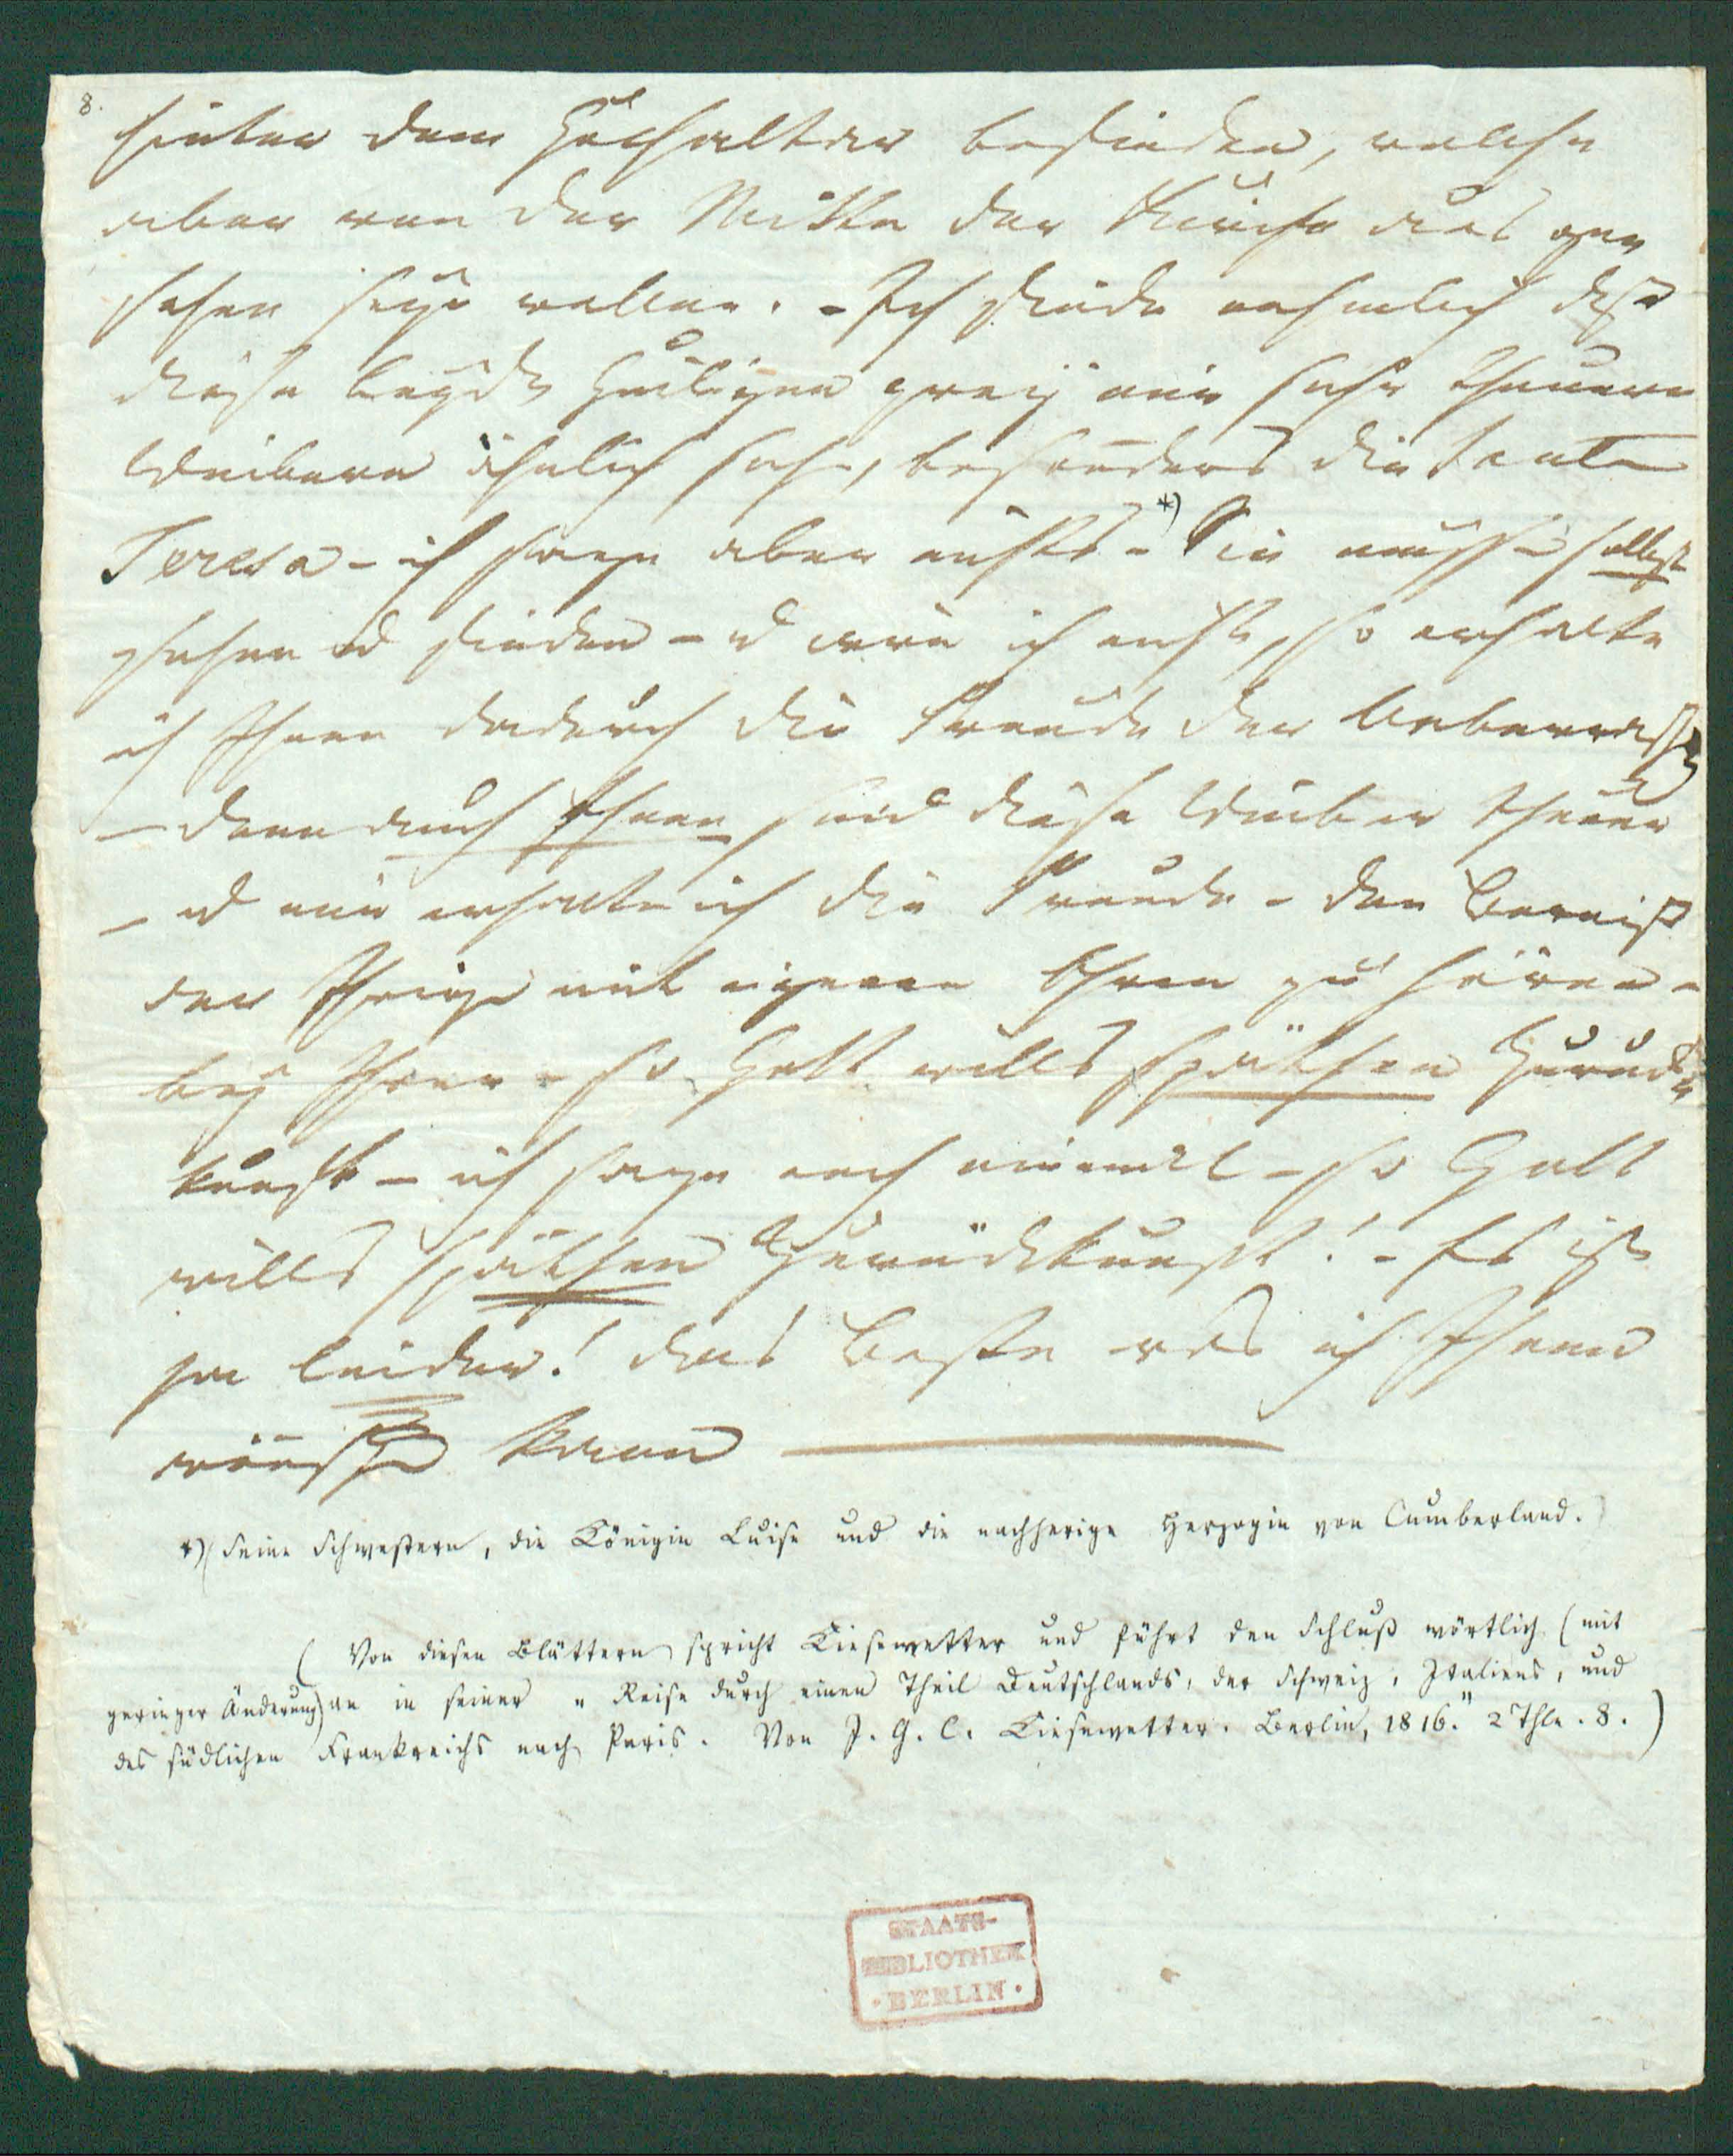 8.
hinter dem Hochaltar befinden, welche
aber von der Mitte der Kirche aus ge
sehen seyn wollen. - Ich finde nehmlich daß
diese beyde Heiligen zwey mir sehr theuern
Weibern ähnlich sehn, besonders die Sante
Teresa - ich sage aber nichts - *) Sie müssen selbst
sehen u finden - u irre ich nicht, so erhalte
ich Ihnen dadurch die Freude der Ueberrasch
- denn auch Ihnen sind diese Weiber theuer
- u mir erhalte ich die Freude - den Beweiß
der Ihrige mit eigenen Ohren zu hören -
bey Ihrer - so Gott wills späthen Zurück
kunft - ich sage noch einmal - so Gott
wills späthen Zurückkunft! - Es ist
ja leider! das Beste was ich Ihnen
wünschen kann
*) (Seine Schwestern, die Königin Luise und die nachherige Herzogin von Cumberland.)
( Von diesen Blättern spricht Kiesewetter und führt den Schluß wörtlich (mit
geringer Änderung) an in seiner „Reise durch einen Theil Deutschlands, der Schweiz, Italiens, und
des südlichen Frankreichs nach Paris. Von J. G. C. Kiesewetter. Berlin, 1816." 2 Thle. 8. )
STAATS-
BIBLIOTHEK
· BERLIN ·